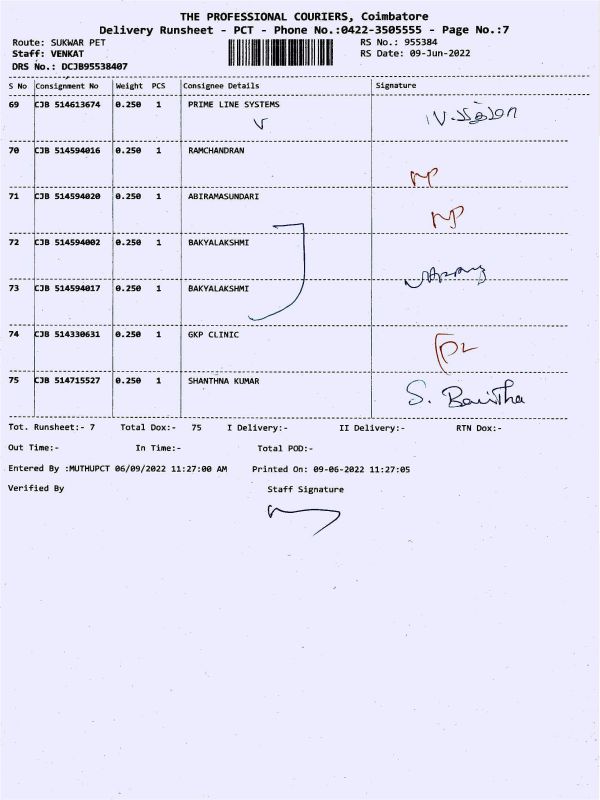 THE PROFESSIONAL COURIERS, Coimbatore
Delivery Runsheet - PCT - Phone No.:0422-3505555 - Page No.:7
Route: SUKWAR PET RS No.: 955384
Staff: VENKAT RS Date: 09-Jun-2022
DRS No.: DCJB95538407
S No Consignment No Weight PCS Consignee Details Signature
69 CJB 514613674 0.250 1 PRIME LINE SYSTEMS
70 CJB 514594016 0.250 1 RAMCHANDRAN
NP
71 CJB 514594020 0.250 1 ABIRAMASUNDARI
NP
72 CJB 514594002 0.250 1 BAKYALAKSHMI
73 CJB 514594017 0.250 1 BAKYALAKSHMI
74 CJB 514330631 0.250 1 GKP CLINIC
DL
75 CJB 514715527 0.250 1 SHANTHNA KUMAR
S.
Tot. Runsheet:- 7 Total Dox:- 75 I Delivery:- II Delivery:- RTN Dox:-
Out Time:- In Time:- Total POD:-
Entered By :MUTHUPCT 06/09/2022 11:27:00 AM Printed On: 09-06-2022 11:27:05
Verified By Staff Signature